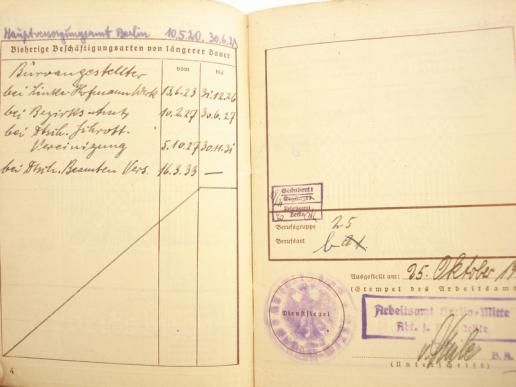 Hauptversorgungsamt Berlin 10.5.20. 30.6.21
Bisherige Beschäftigungsarten von längerer Dauer
vom bis
Büroangestellter
bei Linke Hofmann Werke 13.6.23 31.12.26
bei Bezirks-Amt 10.2.27 30.6.27
bei Dtsch. Schrott-
Vereinigung 5.10.27 30.11.31
bei Dtsch. Beamten Vers. 16.3.33 —
4
Arbeitsamt
Berlin
Berufsgruppe 25
Berufsart b
Ausgestellt am: 25. Oktober 19
(Stempel des Arbeitsamt
Dienstsiegel
Arbeitsamt Berlin-Mitte
Abt. f.
B.A.
(Unterschrift)